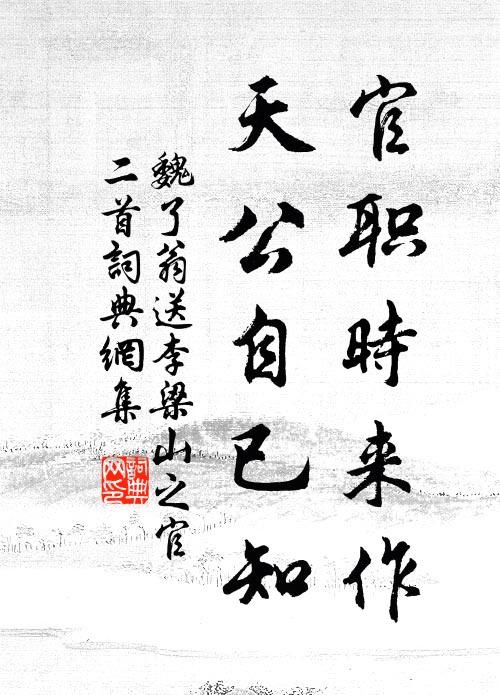 官职時来作
天公自已知
魏了翁送李梁山之官
二首詞典網集
詞典
网印